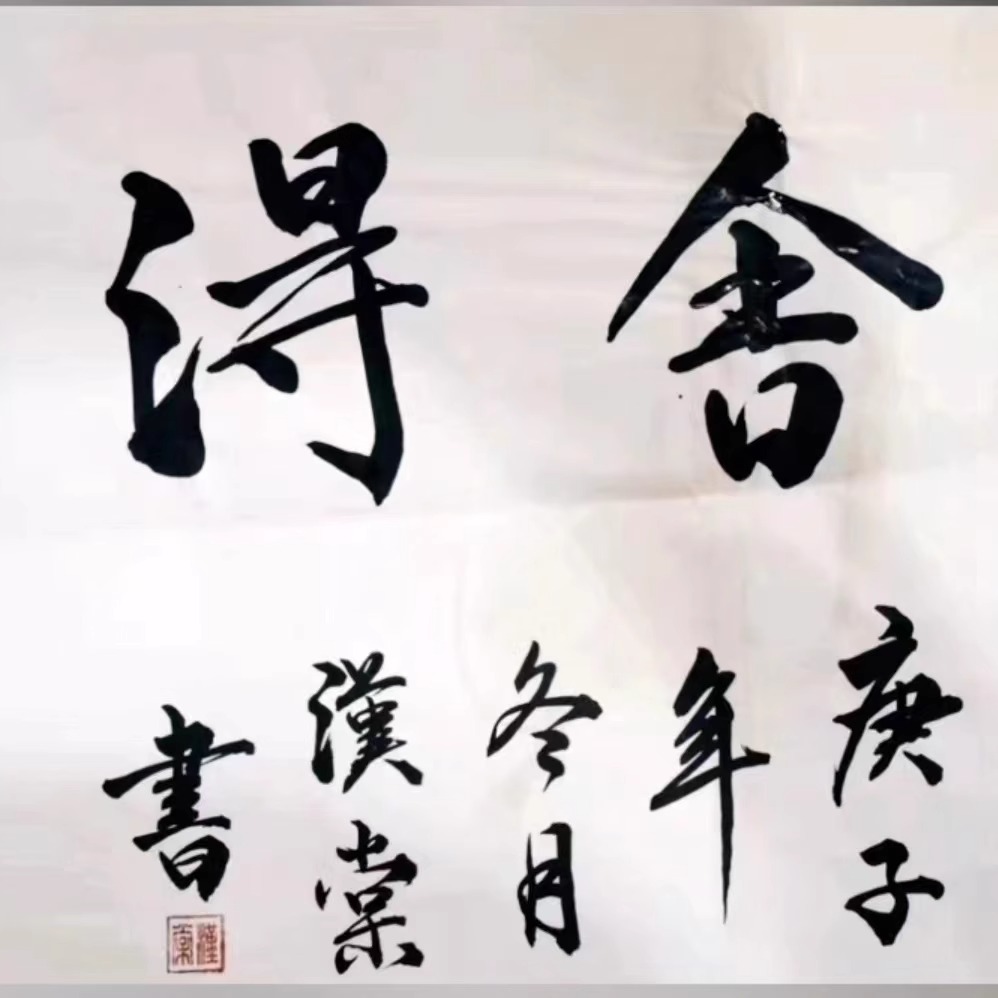 舍得
庚子
年
冬月
漢棠
書
漢棠